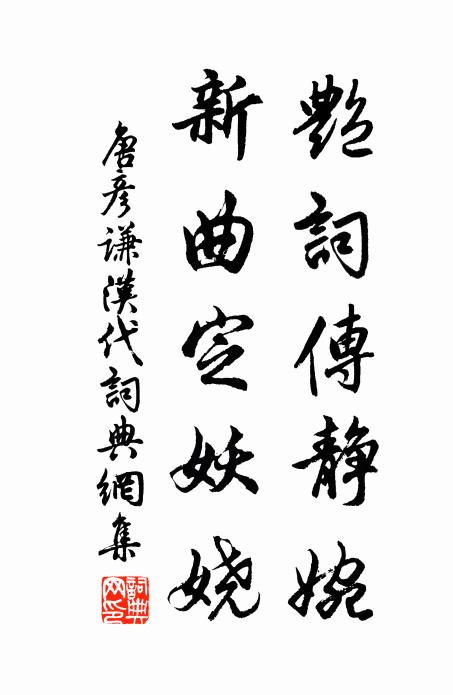 艷詞傳靜婉
新曲定妖嬈
唐彥謙漢代詞典網集
詞典網印